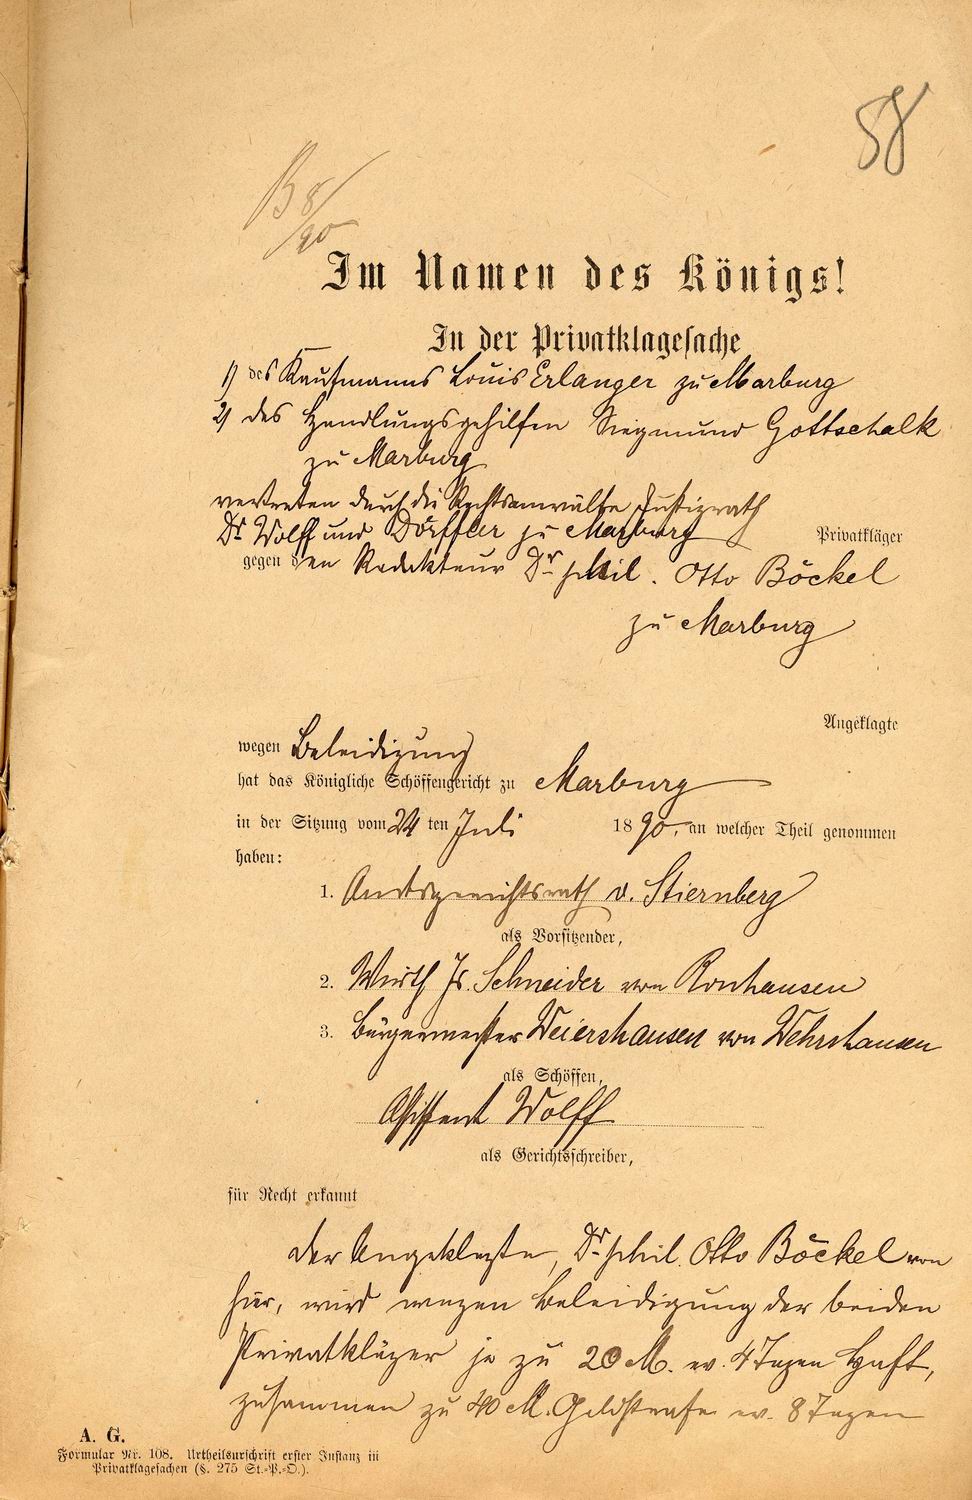 58
B 8/90
Im Namen des Königs!
In der Privatklagesache
1) des Kaufmanns Louis Erlanger zu Marburg
2) des Handlungsgehilfen Siegmund Gottschalk
zu Marburg
vertreten durch die Rechtsanwälte Justizrath
Dr. Wolff und Dörffler zu Marburg Privatkläger
gegen den Redakteur Dr. phil. Otto Böckel
zu Marburg
Angeklagte
wegen Beleidigung
hat das Königliche Schöffengericht zu Marburg
in der Sitzung vom 24 ten Juli 1890, an welcher Theil genommen
haben:
1. Amtsgerichtsrath v. Stiernberg
als Vorsitzender,
2. Wirth Js. Schneider von Ronhausen
3. Bürgermeister Weiershausen von Wehrshausen
als Schöffen,
Assistent Wolff
als Gerichtsschreiber,
für Recht erkannt
Der Angeklagte, Dr. phil. Otto Böckel von
hier, wird wegen Beleidigung der beiden
Privatkläger je zu 20 M. ev. 4 Tagen Haft,
zusammen zu 40 M. Geldstrafe ev. 8 Tagen
A. G.
Formular Nr. 108. Urtheilsurschrift erster Instanz in
Privatklagesachen (§. 275 St.-P.-O.).